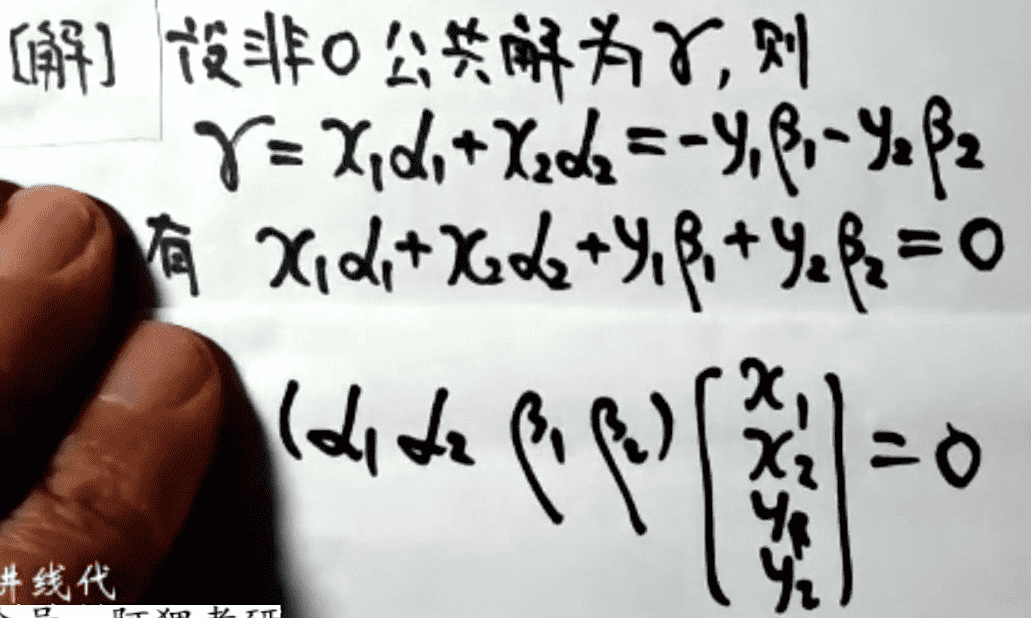 [解] 设非0公共解为γ, 则
γ = x₁α₁ + x₂α₂ = -y₁β₁ - y₂β₂
有 x₁α₁ + x₂α₂ + y₁β₁ + y₂β₂ = 0
(α₁ α₂ β₁ β₂) [x₁ x₂ y₁ y₂] = 0
讲线代